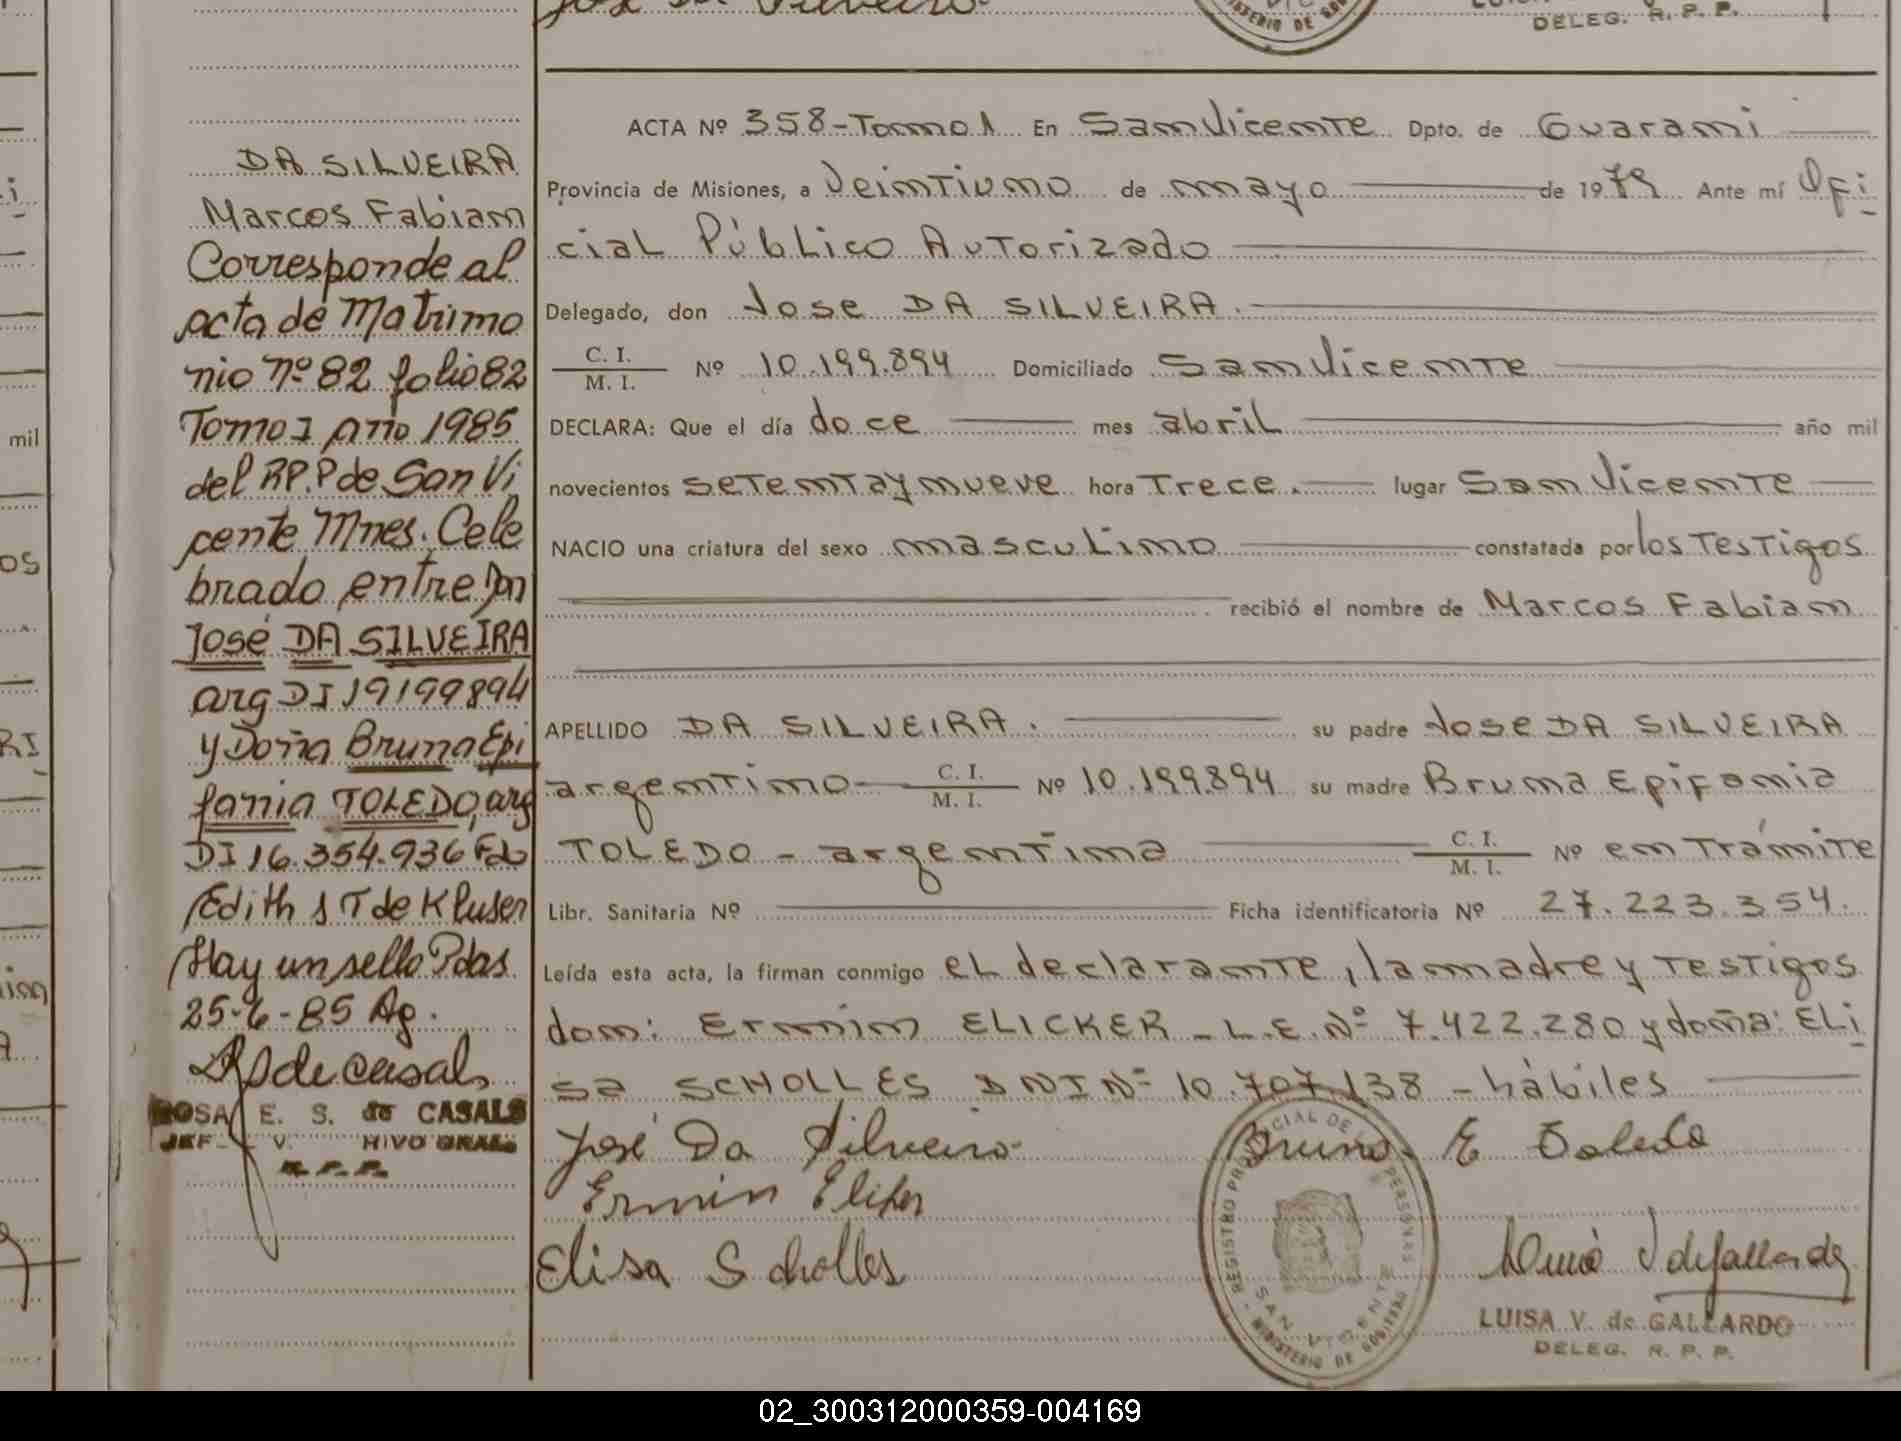 DA SILVEIRA
Marcos Fabian
Corresponde al
acta de Matrimo
nio nº 82 folio 82
Tomo 1 año 1985
del RP.P de San Vi
cente Mnes. Cele
brado entre Don
José DA SILVEIRA
arg DI 19199894
y Doña Bruna Epi
fania TOLEDO, arg
DI 16.354.936 Fdo
Edith S T de Kluser
Hay un sello Pdas
25-6-85 Ag.
de Casals
ROSA E. S. de CASALS
R. P. P.
DELEG. R. P. P.
ACTA Nº 358-Tomo 1 En San Vicente Dpto. de Guarani
Provincia de Misiones, a Veintiuno de mayo de 1979 Ante mí Ofi
cial Público Autorizado
Delegado, don Jose DA SILVEIRA.
C. I. / M. I. Nº 10.199.894 Domiciliado San Vicente
DECLARA: Que el día doce mes abril año mil
novecientos setenta y nueve hora Trece. lugar San Vicente
NACIO una criatura del sexo masculino constatada por los Testigos
recibió el nombre de Marcos Fabian
APELLIDO DA SILVEIRA. su padre Jose DA SILVEIRA
argentino C. I. / M. I. Nº 10.199.894 su madre Bruna Epifania
TOLEDO - argentina C. I. / M. I. Nº en Trámite
Libr. Sanitaria Nº Ficha identificatoria Nº 27.223.354.
Leída esta acta, la firman conmigo el declarante, la madre y Testigos
don: Ermin ELICKER - L.E. Nº 7.422.280 y doña: ELi
sa SCHOLLES DNI Nº 10.707.138 - hábiles
José Da Silveira
Bruna E Toledo
Ermin Eliker
Elisa Scholles
REGISTRO PROVINCIAL DE LAS PERSONAS
SAN VICENTE
MINISTERIO DE GOBIERNO
LUISA V. de GALLARDO
DELEG. R. P. P.
02_300312000359-004169